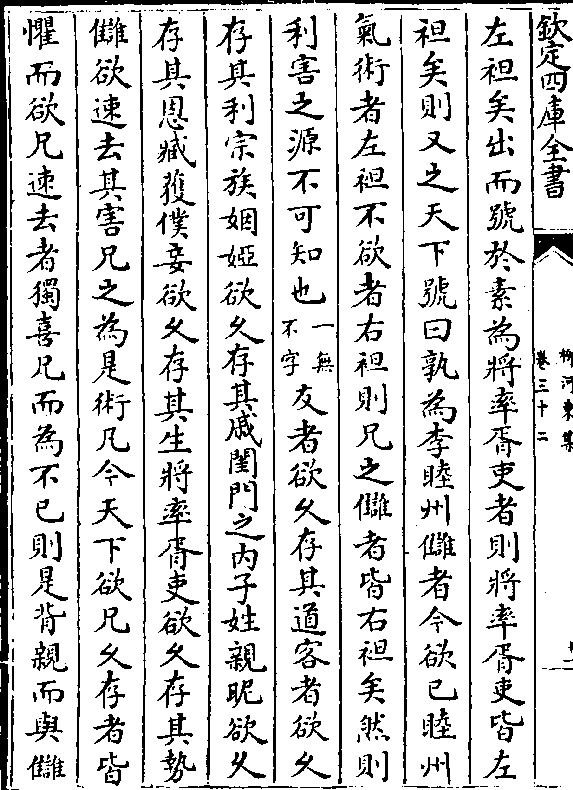 欽定四庫全書
柳河東集
卷三十二
左袒矣出而號於素為將率胥吏者則將率胥吏皆左
袒矣則又之天下號曰孰為李睦州讎者今欲已睦州
氣術者左袒不欲者右袒則兄之讎者皆右袒矣然則
利害之源不可知也一無不字友者欲久存其道客者欲久
存其利宗族姻婭欲久存其戚閨門之内子姓親昵欲久
存其恩臧獲僕妾欲久存其生將率胥吏欲久存其勢
讎欲速去其害兄之為是術凡今天下欲兄久存者皆
懼而欲兄速去者獨喜兄而為不已則是背親而與讎